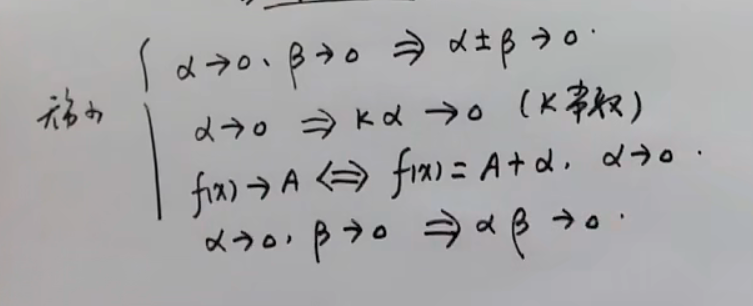 α→0、β→0 ⇒ α±β→0.
无穷小 α→0 ⇒ kα→0 (k常数)
f(x)→A ⇔ f(x)=A+α, α→0.
α→0, β→0 ⇒ αβ→0.